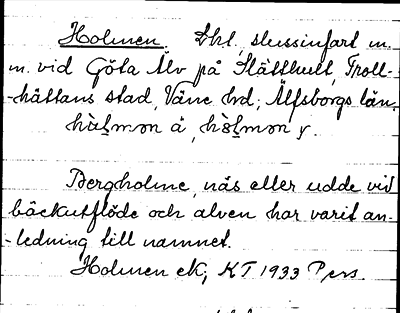 Holmen. Lht, slussinfart m.
m. vid Göta Älv på Slätthult, Troll-
-hättans stad, Väne hd; Älfsborgs län.
hòlmɔn å, hòlmɔn y.
Bergholme, näs eller udde vid
bäckutflöde och älven har varit an-
-ledning till namnet.
Holmen ek; KT 1933 Pers.